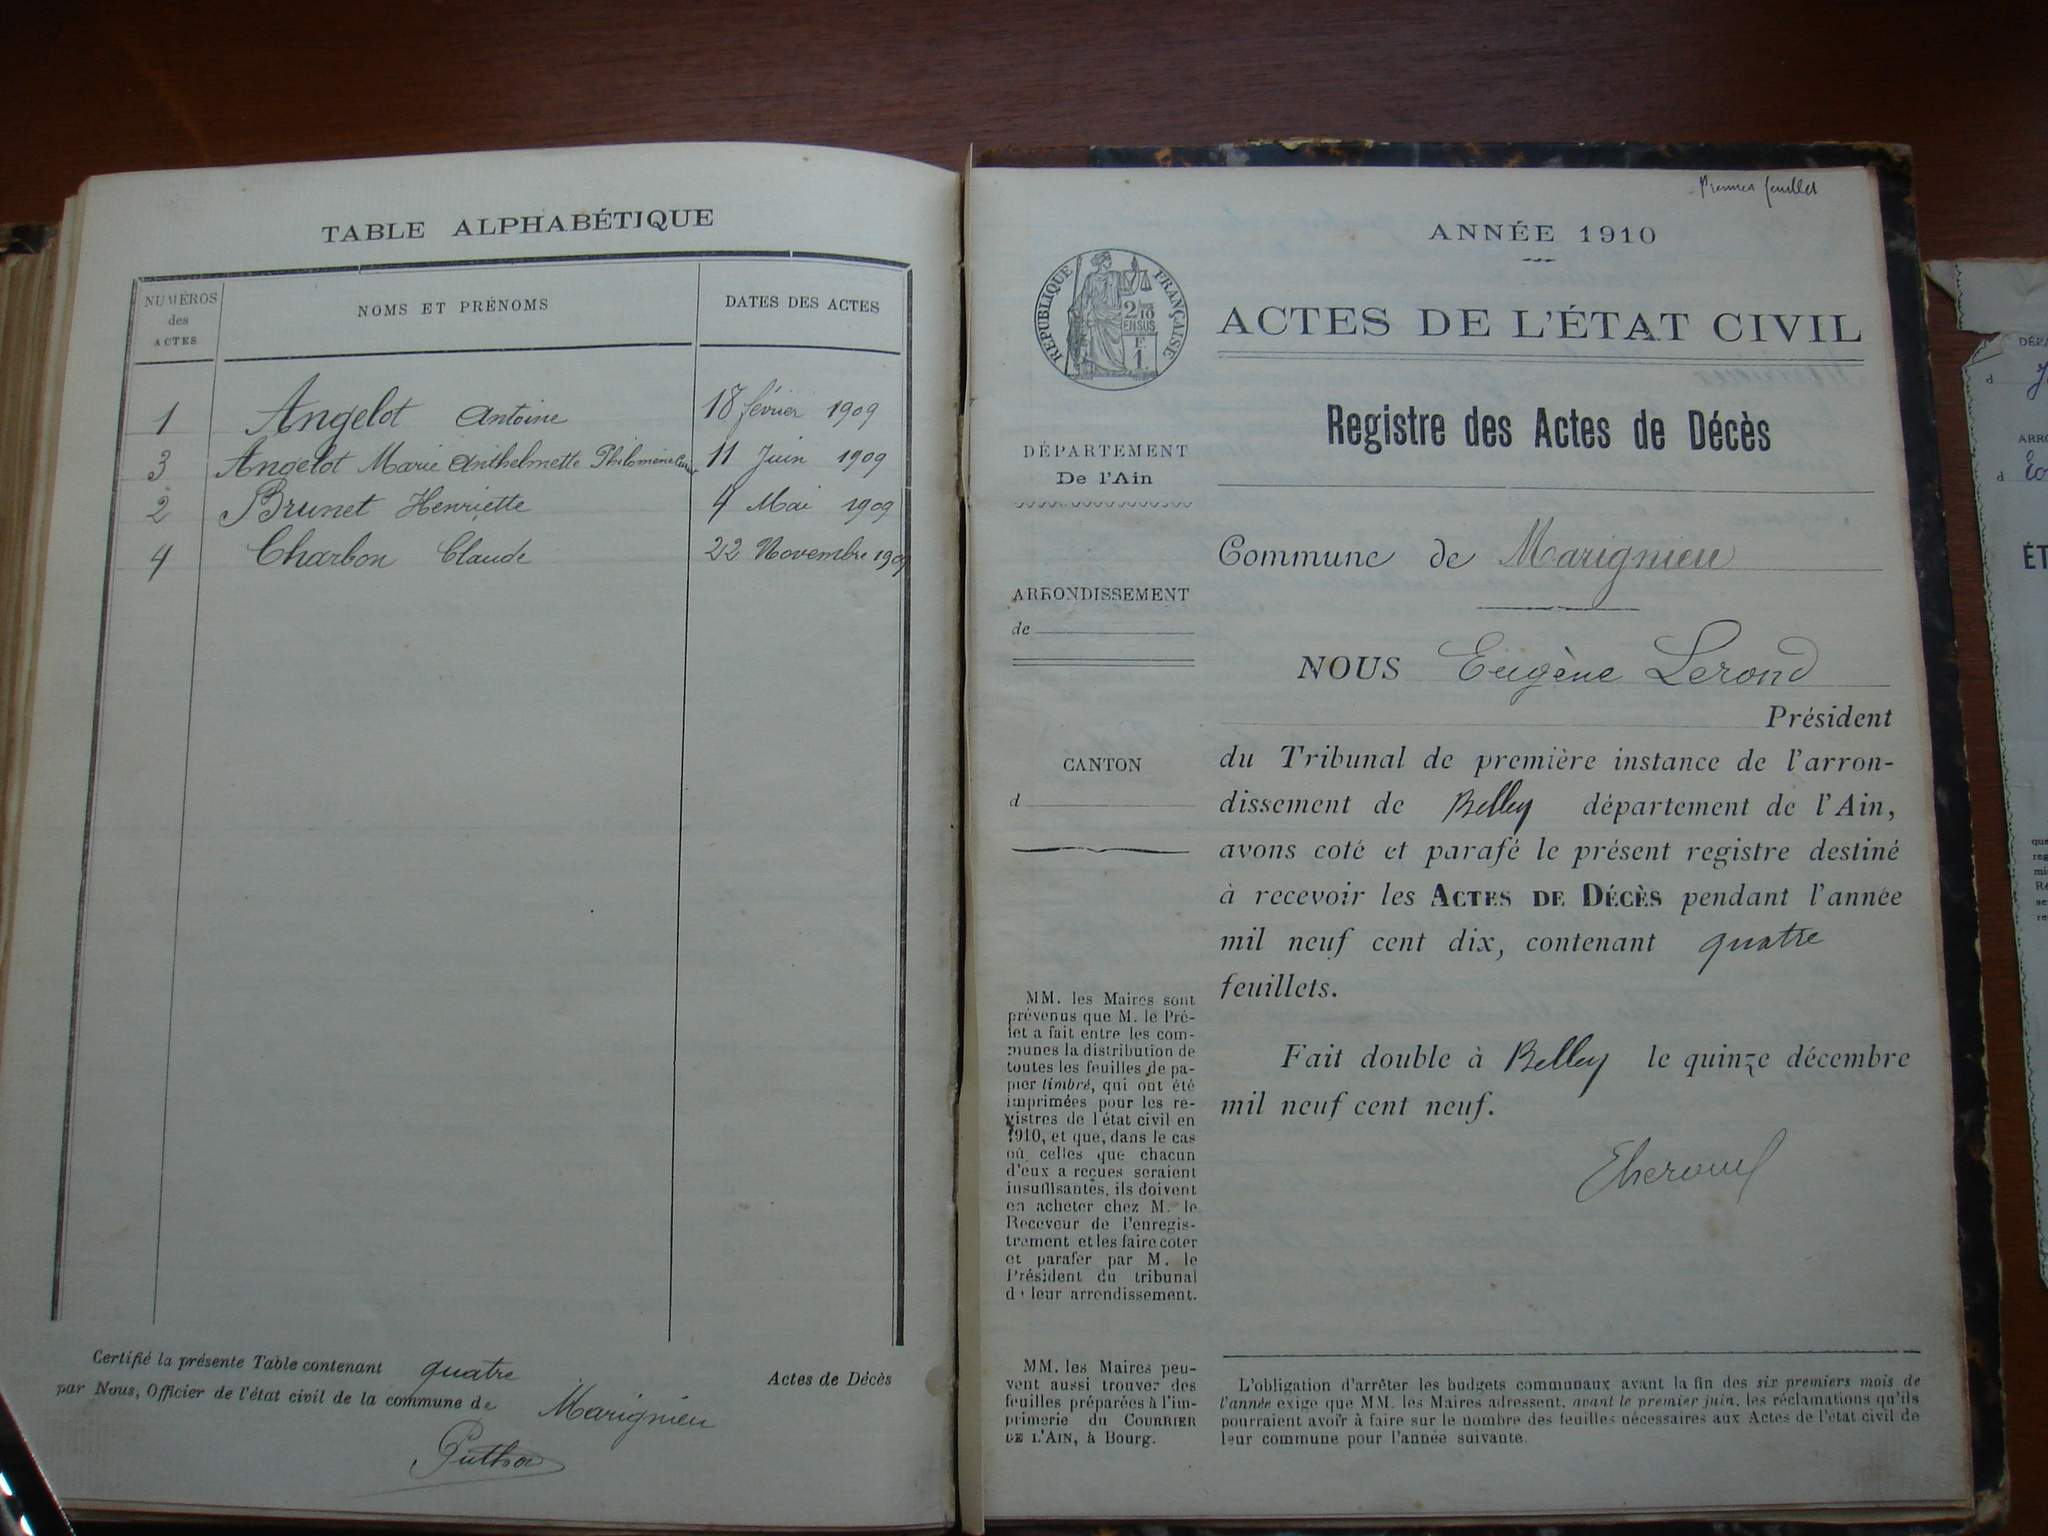 TABLE ALPHABÉTIQUE
NUMÉROS
des
ACTES
NOMS ET PRÉNOMS
DATES DES ACTES
1 Angelot Antoine 18 février 1909
3 Angelot Marie Anthelmette Philomène 11 Juin 1909
2 Brunet Henriette 4 Mai 1909
4 Charbon Claude 22 Novembre 1909
Certifié la présente Table contenant quatre Actes de Décès
par Nous, Officier de l'état civil de la commune de Marignieu
Premier feuillet
ANNÉE 1910
RÉPUBLIQUE FRANÇAISE
2/10
EN SUS
F
1.
ACTES DE L'ÉTAT CIVIL
Registre des Actes de Décès
DÉPARTEMENT
De l'Ain
Commune de Marignieu
ARRONDISSEMENT
de
NOUS Eugène Lerond
Président
CANTON
d
du Tribunal de première instance de l'arron-
dissement de Belley département de l'Ain,
avons coté et parafé le présent registre destiné
à recevoir les ACTES DE DÉCÈS pendant l'année
mil neuf cent dix, contenant quatre
feuillets.
Fait double à Belley le quinze décembre
mil neuf cent neuf.
MM. les Maires sont
prévenus que M. le Pré-
fet a fait entre les com-
munes la distribution de
toutes les feuilles de pa-
pier timbré, qui ont été
imprimées pour les re-
gistres de l'état civil en
1910, et que, dans le cas
où celles que chacun
d'eux a reçues seraient
insuffisantes, ils doivent
en acheter chez M. le
Receveur de l'enregis-
trement et les faire coter
et parafer par M. le
Président du tribunal
de leur arrondissement.
MM. les Maires peu-
vent aussi trouver des
feuilles préparées à l'im-
primerie du COURRIER
DE L'AIN, à Bourg.
L'obligation d'arrêter les budgets communaux avant la fin des six premiers mois de
l'année exige que MM. les Maires adressent, avant le premier juin, les réclamations qu'ils
pourraient avoir à faire sur le nombre des feuilles nécessaires aux Actes de l'état civil de
leur commune pour l'année suivante.
DÉPA
d
ARRO
d
ÉT
que
reg
mi
Ré
se
re